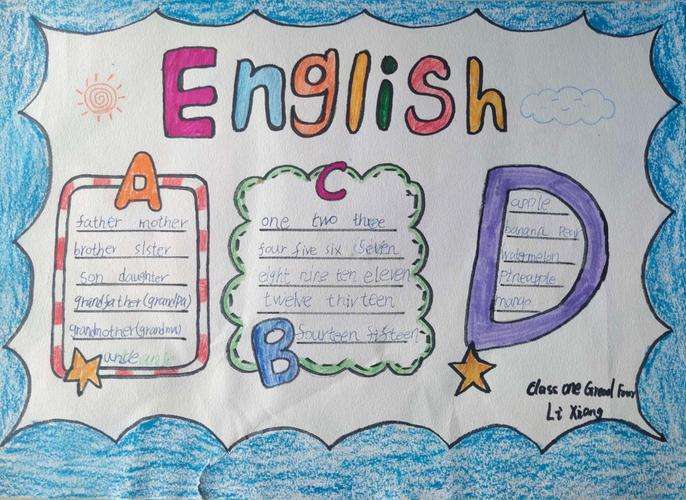 English
A
father mother
brother sister
son daughter
grandfather (grandpa)
grandmother (grandma)
uncle
C
one two three
four five six seven
eight nine ten eleven
twelve thirteen
B
fourteen fifteen
D
apple
banana pear
watermelon
Pineapple
mango
Class one Four
Li Xiang